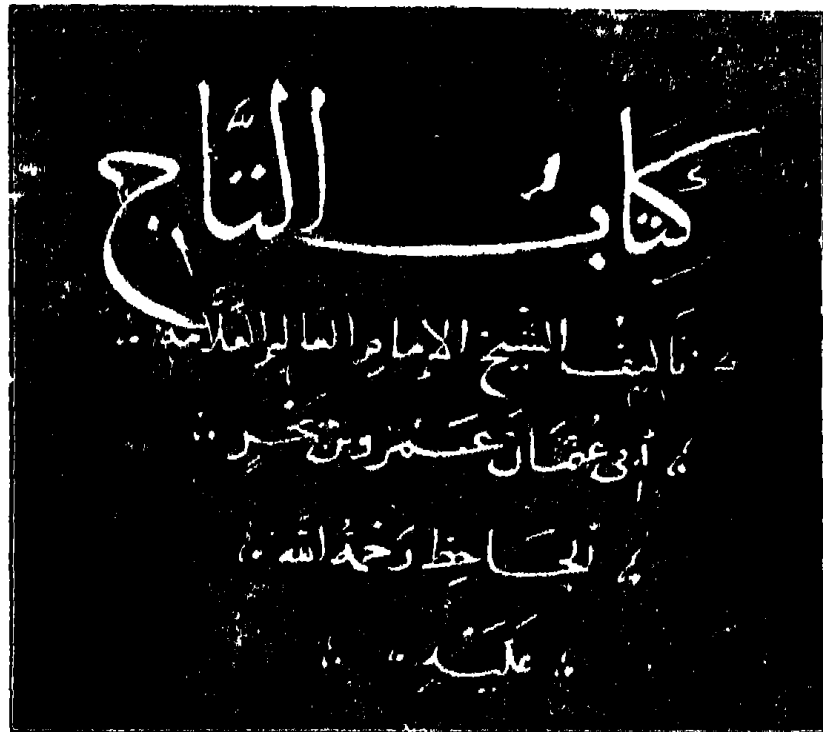 كتابُ التَّاج
تأليف الشيخ الإمام العالم العلّامة
أبي عُثمَانَ عَمْرو بن بحرٍ
الجَاحِظ رَحْمَةُ الله
عَلَيْهِ